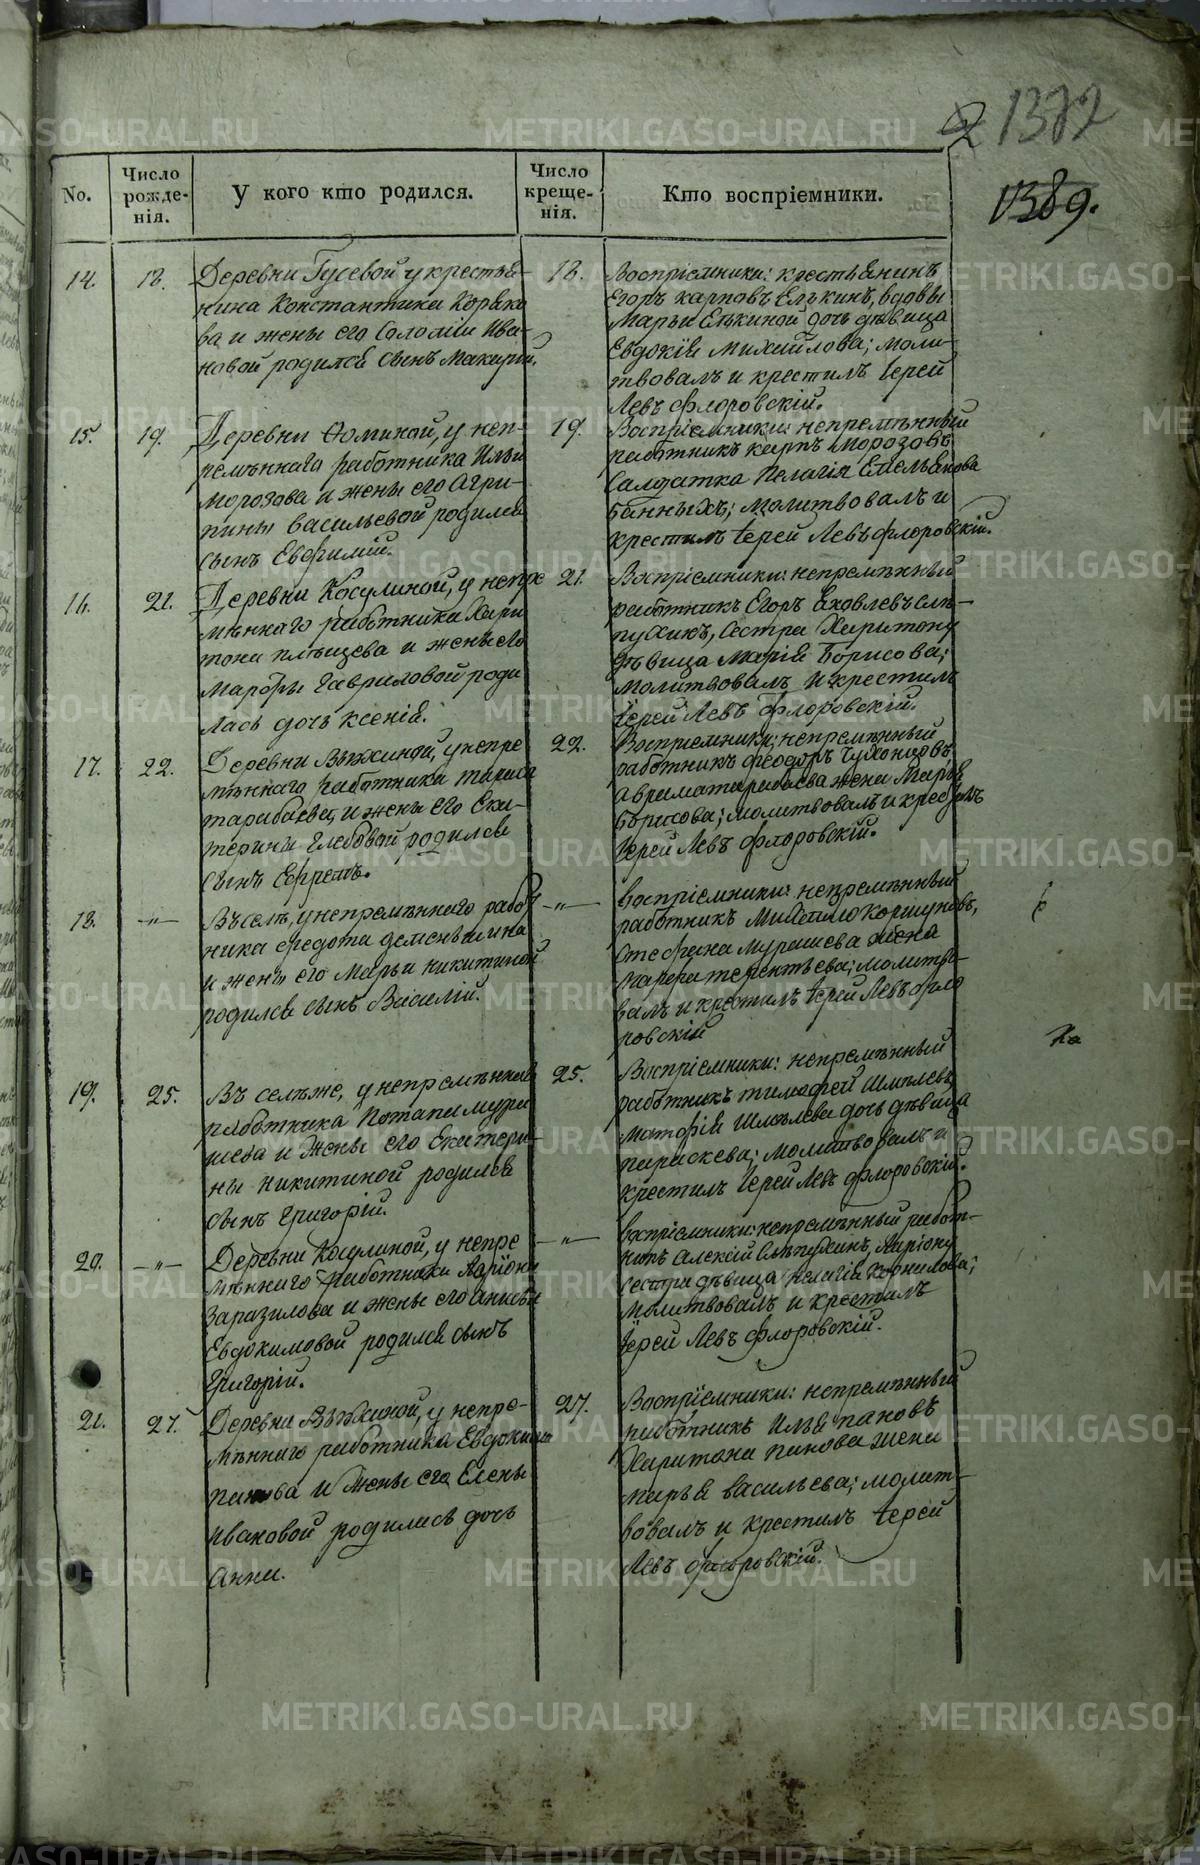 1372
1389.
No.
Число рожденія.
У кого кто родился.
Число крещенія.
Кто воспріемники.
14.
18.
Деревни Гусевой у крестья-
нина Константина Коряко
ва и жены его Соломіи Ива-
новой родился сынъ Макарій.
18.
Воспріемники: крестьянинъ
Егоръ Карповъ Елькинъ, вдовы
Марьи Елькиной дочь дѣвица
Евдокія Михайлова; моли-
твовалъ и крестилъ Іерей
Левъ Флоровскій.
15.
19.
Деревни Фоминой, у неп-
ремѣннаго работника Ильи
Морозова и жены его Агри-
пины Васильевой родился
сынъ Евфимій.
19.
Воспріемники: непремѣнный
работникъ Карпъ Морозовъ,
Салдатка Пелагія Емельянова
Банныхъ; молитвовалъ и
крестилъ Іерей Левъ Флоровскій.
16.
21.
Деревни Косулиной, у непре
мѣннаго работника Хари
тона и жены его
Марфы Гавриловой роди
лась дочь Ксенія.
21.
Воспріемники: непремѣнный
работникъ Егоръ Яковлевъ Слѣ-
пухинъ, сестра Харитону
дѣвица Марія Борисова;
молитвовалъ и крестилъ
Іерей Левъ Флоровскій.
17.
22.
Деревни у непре
мѣннаго работника Тараса
Тарабаева, и жены его Ека-
терины Глебовой родился
сынъ Ефремъ.
22.
Воспріемники; непремѣнный
работникъ Феодоръ
Тарабаева жена Марья
Борисова; молитвовалъ и крестилъ
Іерей Левъ Флоровскій.
18.
-„-
Въ селѣ, у непремѣннаго работ
ника Федота
и жены его Марьи Никитиной
родился сынъ Василій.
-„-
Воспріемники: непремѣнный
работникъ Коршуновъ,
Стефана Мурашева жена
Марфа Терентьева; молитво-
валъ и крестилъ Іерей Левъ Фло
ровскій
19.
25.
Въ селѣ же, у непремѣннаго
работника Потапа Мура
шева и жены его Екатери-
ны Никитиной родился
сынъ Григорій.
25.
Воспріемники: непремѣнный
работникъ Тимофей Шмелевъ,
Шмѣлева дочь дѣвица
Параскева; молитвовалъ и
крестилъ Іерей Левъ Флоровскій.
20.
-„-
Деревни Косулиной, у непре
мѣннаго работника Ларіона
Заразилова и жены его Анисьи
Евдокимовой родился сынъ
Григорій.
-„-
Воспріемники: непремѣнный работ-
никъ Алексій Слѣпухинъ, Ларіону
сестра дѣвица Пелагія Корнилова;
молитвовалъ и крестилъ
Іерей Левъ Флоровскій.
21.
27.
Деревни у непре-
мѣннаго работника Евдокима
Панова и жены его Елены
Ивановой родилась дочь
Анна.
27.
Воспріемники: непремѣнный
работникъ Илья Пановъ
Харитона Панова жена
Марья Васильева; молит-
вовалъ и крестилъ Іерей
Левъ Флоровскій.
METRIKI.GASO-URAL.RU